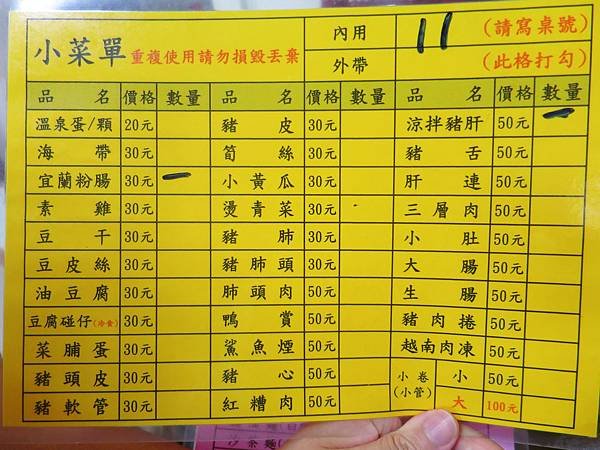 小菜單 重複使用請勿損毀丟棄 內用 11 (請寫桌號)
外帶 (此格打勾)
品名 價格 數量 品名 價格 數量 品名 價格 數量
溫泉蛋/顆 20元 豬皮 30元 涼拌豬肝 50元 一
海帶 30元 筍絲 30元 豬舌 50元
宜蘭粉腸 30元 一 小黃瓜 30元 肝連 50元
素雞 30元 燙青菜 30元 三層肉 50元
豆干 30元 豬肺 30元 小肚 50元
豆皮絲 30元 豬肺頭 30元 大腸 50元
油豆腐 30元 肺頭肉 50元 生腸 50元
豆腐碰仔(冷食) 30元 鴨賞 50元 豬肉捲 50元
菜脯蛋 30元 鯊魚煙 50元 越南肉凍 50元
豬頭皮 30元 豬心 50元 小卷(小管) 小 50元
豬軟管 30元 紅糟肉 50元 大 100元